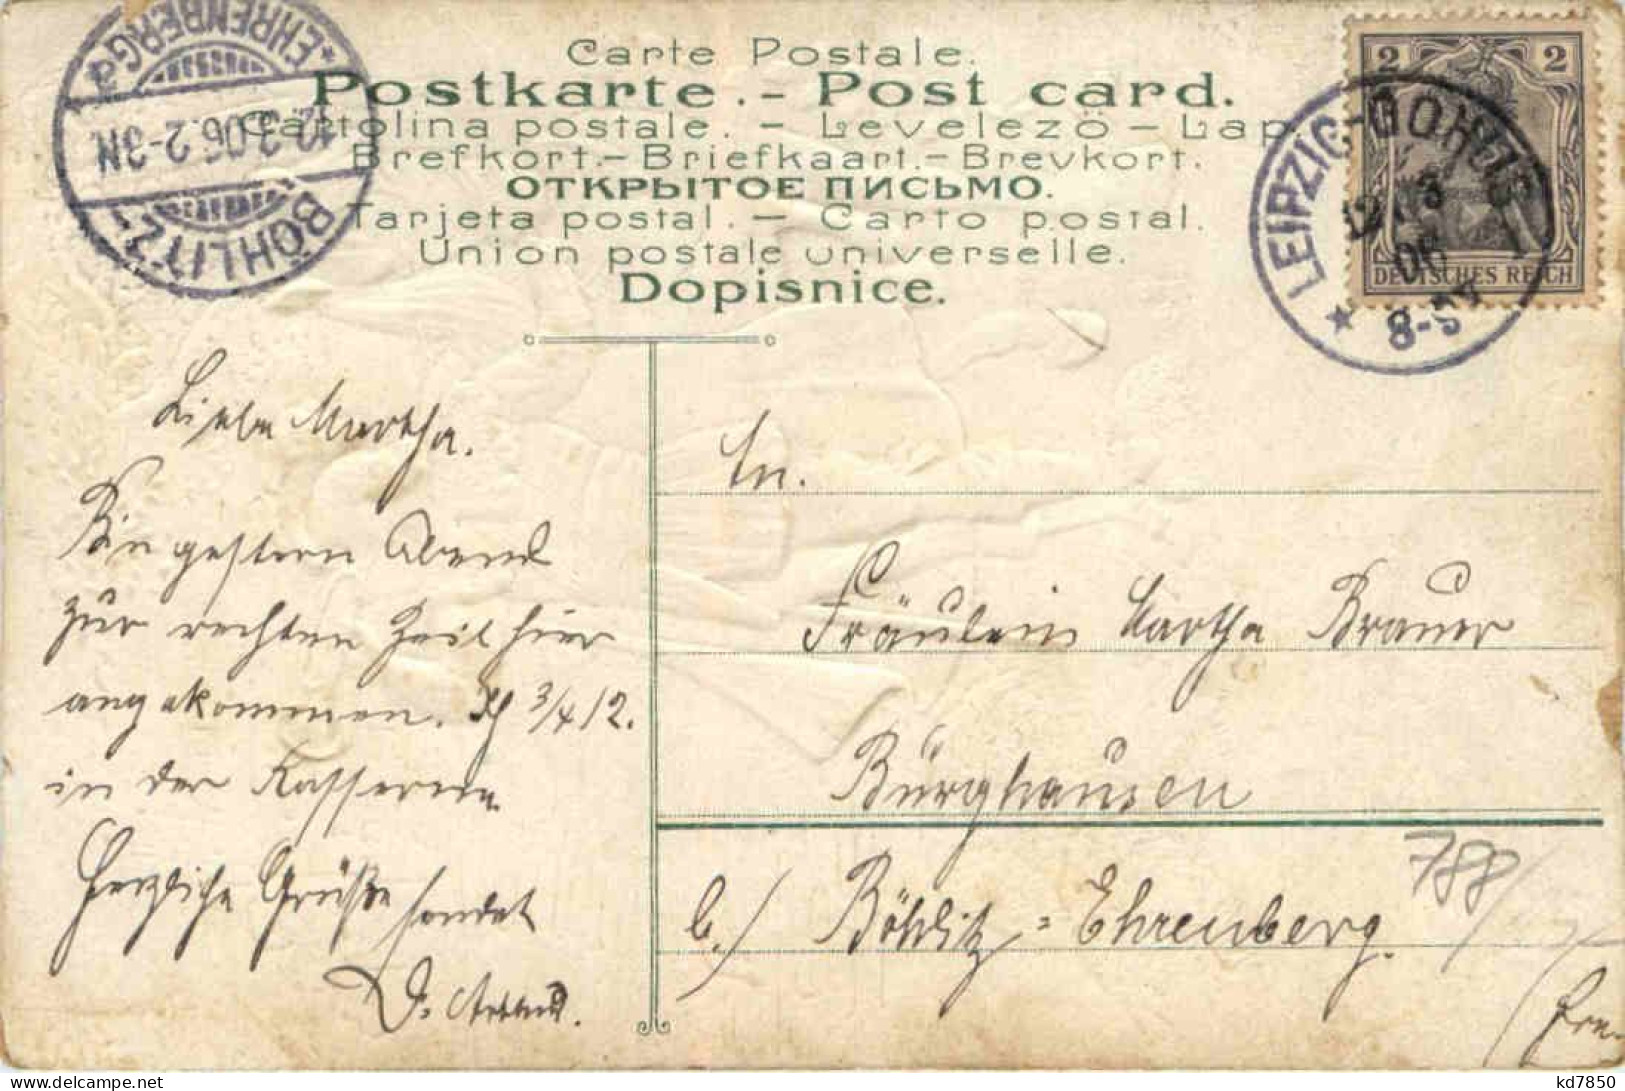 Carte Postale.
Postkarte. - Post card.
Cartolina postale. - Levelezö - Lap.
Brefkort. - Briefkaart. - Brevkort.
ОТКРЫТОЕ ПИСЬМО.
Tarjeta postal. - Carto postal.
Union postale universelle.
Dopisnice.
BÖHLITZ-
12.3.06.2-3N.
* EHRENBERG *
LEIPZIG-GOHLIS
12 3
06
8-9V
*
2 2
DEUTSCHES REICH
Liebe Martha.
Bin gestern Abend
zur rechten Zeit hier
angekommen. 3/4 12.
in der Kasserne
Herzliche Grüße sendet
D.
An.
Fräulein Martha Brauer
Burghausen
b./ Böhlitz-Ehrenberg.
788
kd7850